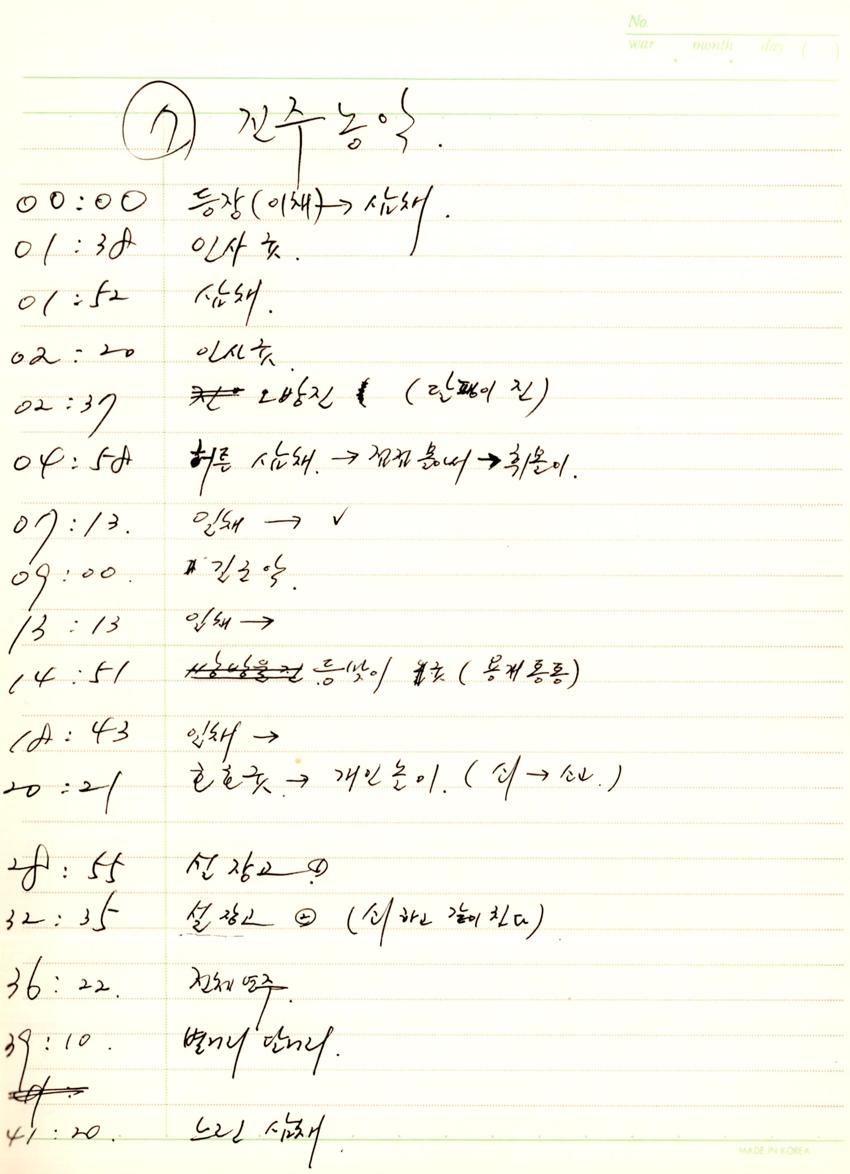 No.
war month day ( )
⑦ 진주농악.
00:00 등장(이채)→ 삼채.
01:38 인사굿.
01:52 삼채.
02:20 인사굿.
02:37 오방진 (달팽이 진)
04:58 허튼 삼채. → 점점몰아서 → 휘몰이.
07:13. 일채 → ✓
09:00. 길군악.
13:13 입채 →
14:51 등맞이 굿 (용개통통)
18:43 입채 →
20:21 호호굿. → 개인놀이. (쇠 → 소고.)
28:55 설장고 ①
32:35 설장고 ② (쇠하고 같이 친다)
36:22. 전체연주.
39:10. 별거리 달거리.
41:20. 느린 삼채.
MADE IN KOREA